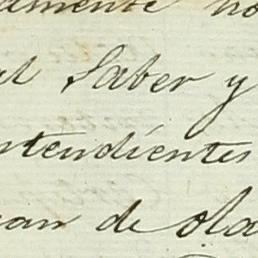 amente no
al Saber y
ntendientes
uan de ola